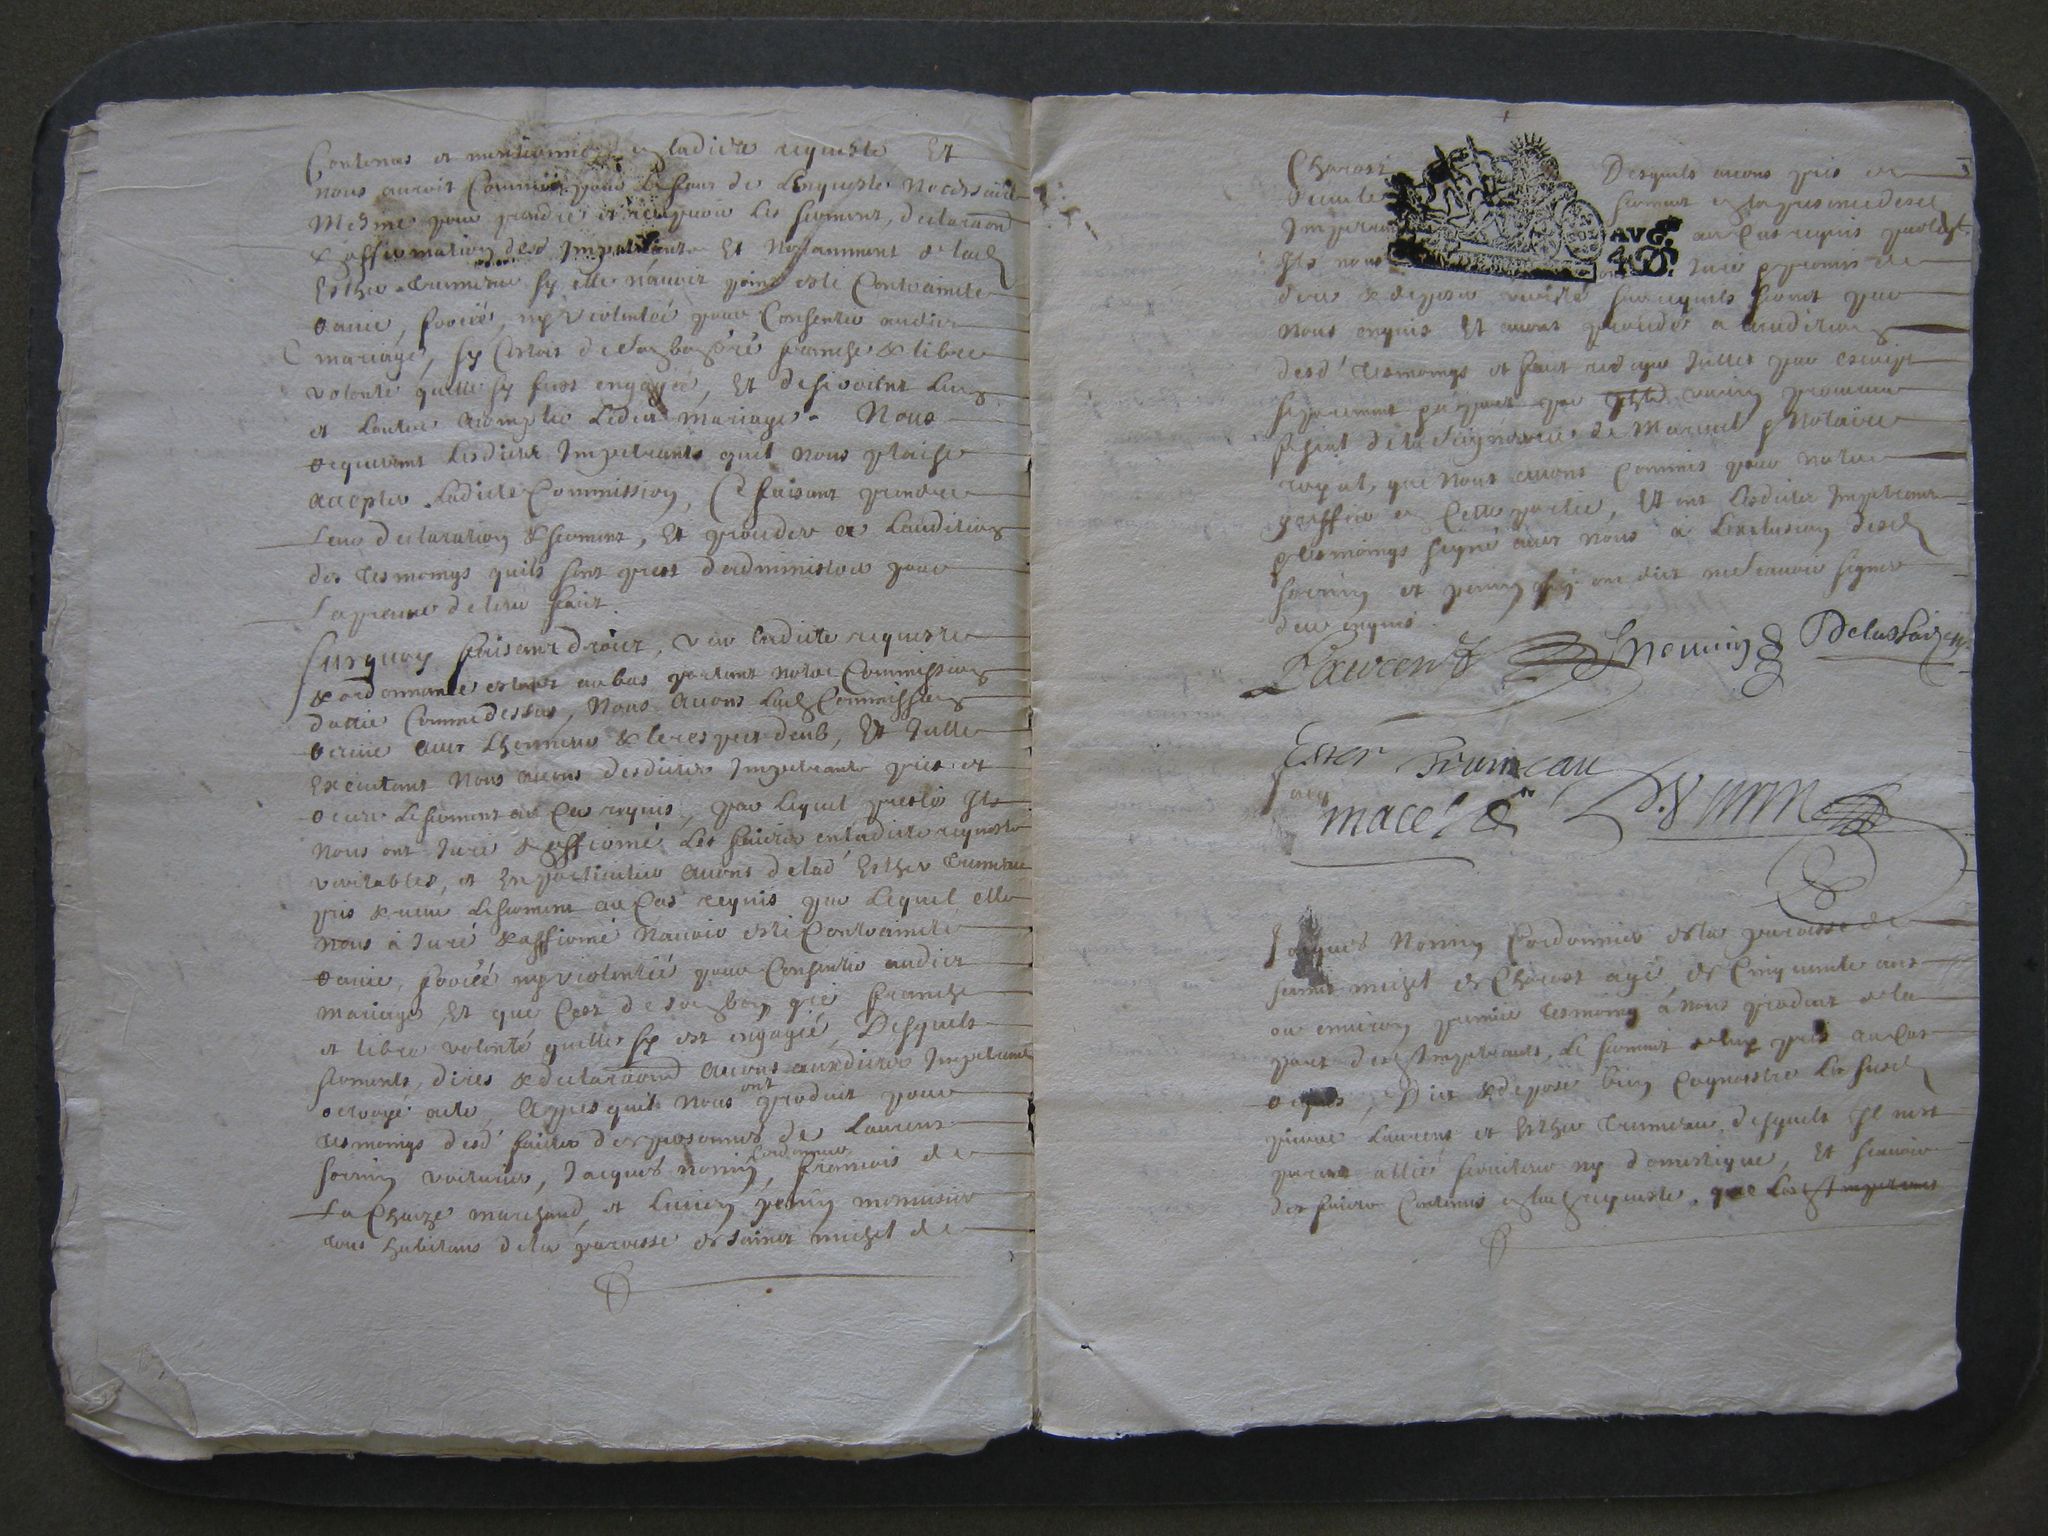 Contenus et mentionnés en ladicte requeste Et
nous auroit Commis pour de Lenqueste Necessaire
Mesme pour prendre et recepuoir les serment, declaraon
& affirmation desd Impetrants Et Notamment de lad
Esther Trumeau sy elle n'auoit point esté Contrainte
rauie, forcée, ny violentée pour Consentir audict
mariage, sy Cestoit de son bon gré franche & libre
volonté quelle sy fust engagée, Et desiroient Lun
et Lautre acomplir Ledict mariage. Nous
requerant Lesdicts Impetrants quil nous plaise
accepter Ladicte Commission, Ce faisant prendre
Leur declaration & serment, Et proceder a Laudition
des tesmoings quils sont prest dadministrer pour
La preuve de leur faict.
Surquoy faisant droict, veu Ladicte requeste
& ordonnance estant au bas portant notre Commission
dattée Comme dessus, Nous Auons Lad Commission
receue auec Lhonneur & le respect deub, Et Icelle
Executant Nous auons desdicts Impetrants pris et
receu Le serment au Cas requis, par Lequel Ils
nous ont Juré & affirmé Les faicts en ladicte requeste
veritables, et En particulier auons de lad' Esther Trumeau
pris & receu Le serment au Cas requis par Lequel elle
nous à Juré & affirmé n'auoir esté Contrainte
rauie, forcée ny violentée pour Consentir audict
mariage, Et que Cest de son bon gré franche
et libre volonté quelle sy est engagée, Desquels
serments, dires & declaraons auons auxdicts Impetrants
octroyé acte, Apres quoy Nous ont produict pour
tesmoings desd' faicts des personnes de Laurent
Sorin voiturier, Jacques nonin Cordonnier, francois de
La Chaize marchand, et Lucien perin menuisier
tous habitans de la paroisse de Sainct michel de
Charost Desquels auons pris et
serment en la presence desd
au Cas requis par
Ils nous Juré promis de
dire & deposer verité surcequils seront par
nous enquis Et auons procedé a Laudition
desd' tesmoings et faict rediger Icelles par escript
separement par vacin procureur
fiscal de la Seigneurie de Mareuil Notaire
royal, que nous auons Commis pour notre
greffier en Cette partie, Et ont Lesdicts Impetrants
& tesmoings signé auec nous a Lexclusion desd
Sorin et perin quy ont dict ne scauoir signer
deux enquis.
Laurent Jnonin Delachaize
Ester Trumeau
macé
Jacques Nonin Cordonnier de la paroisse de
Sainct michel de Charost agé de Cinquante ans
ou enuiron premier tesmoing à nous produict de la
part desd Impetrants, Le serment de luy pris au Cas
requis, Dict & depose bien Cognoistre Les susd
pierre Laurent et Esther Trumeau, desquels Il nest
parent allié seruiteur ny domestique, Et scauoir
des faicts Contenus en lad requeste. que Lesd Impetrants
AVG.on